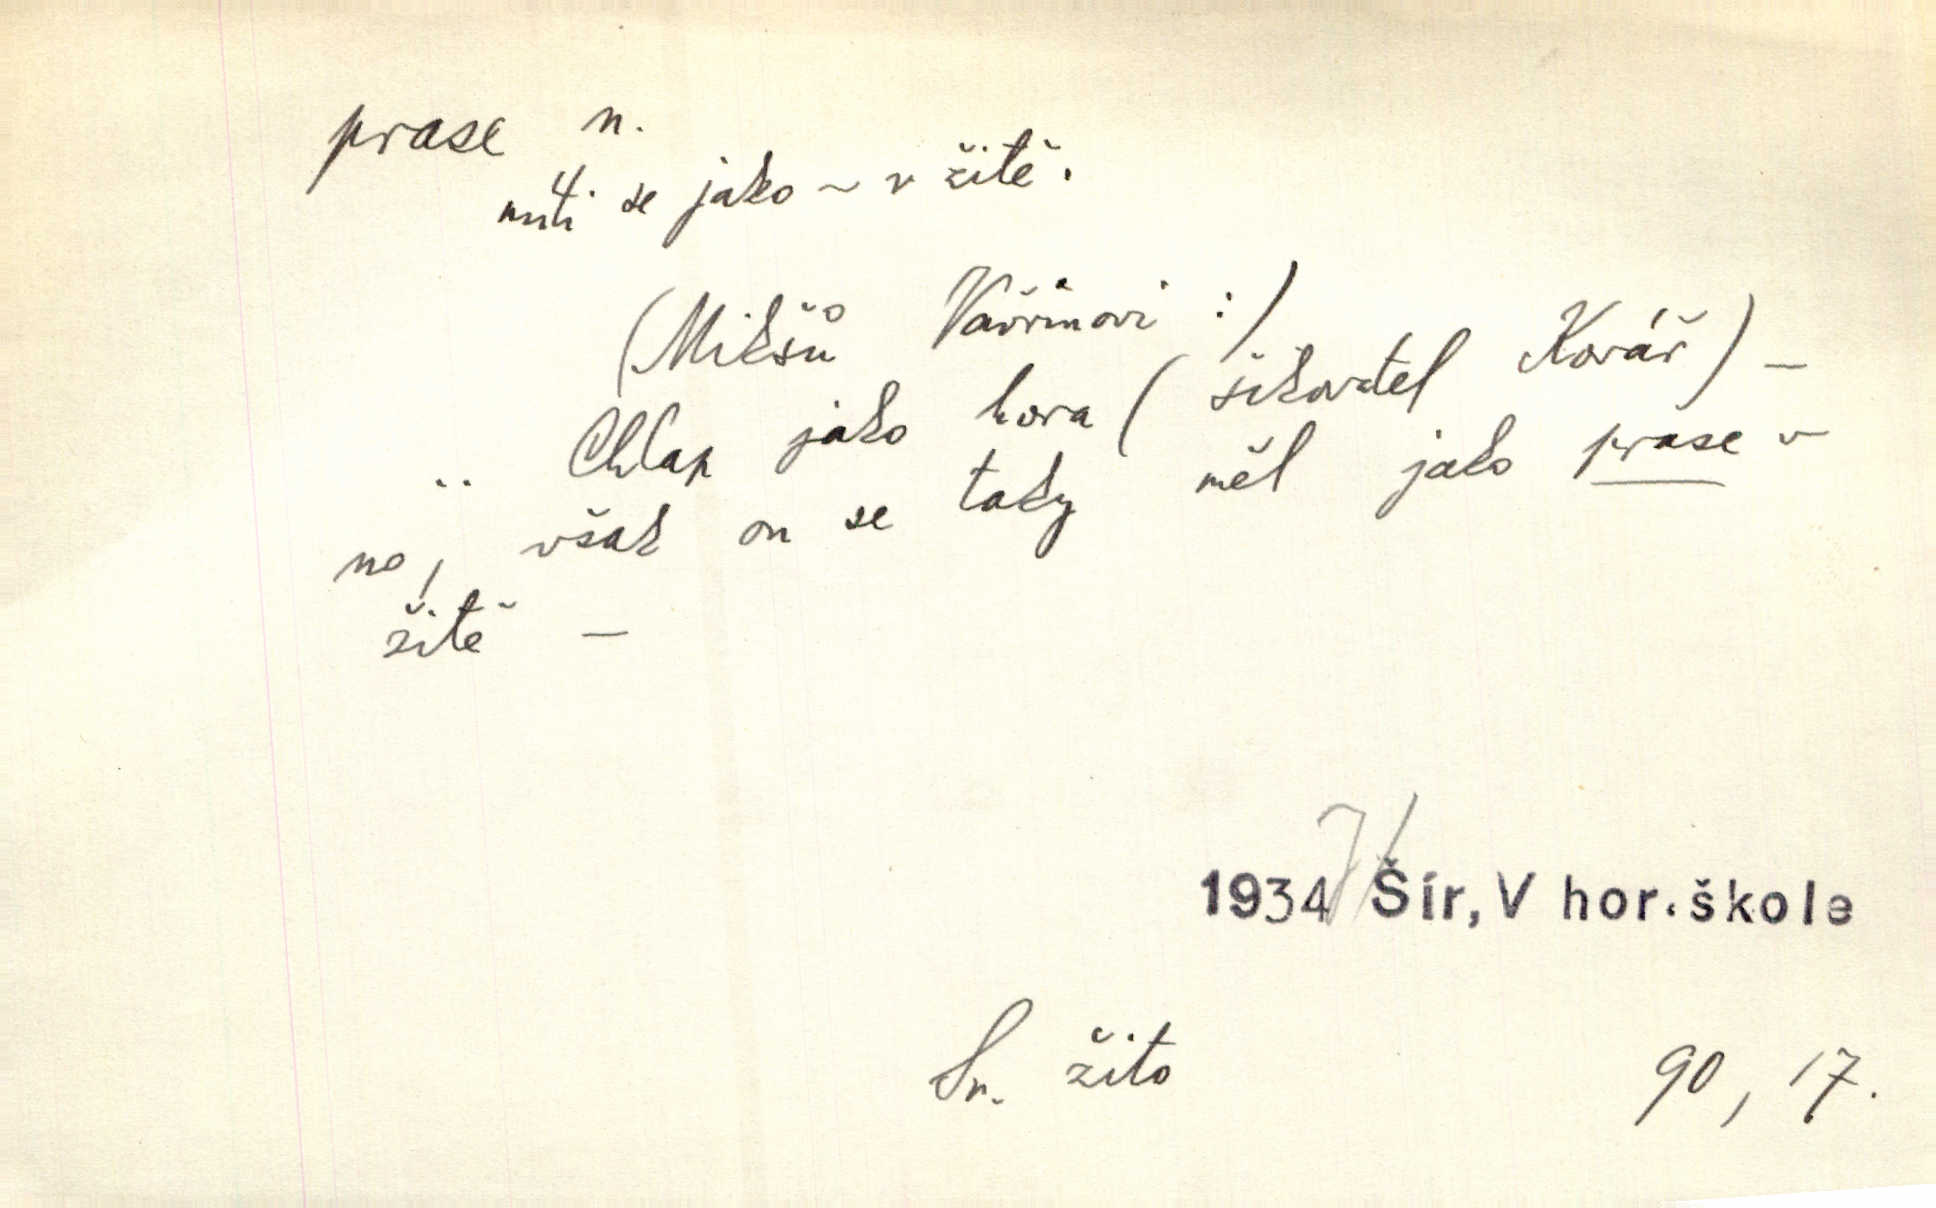 prase n.
míti se jako ~ v žitě.
(Mikšů Vavřínovi :)
.. Chlap jako hora (šikovatel Kovář) —
no, však on se taky měl jako prase v
žitě —
1934 Šír, V hor. škole
Sr. žito 90, 17.